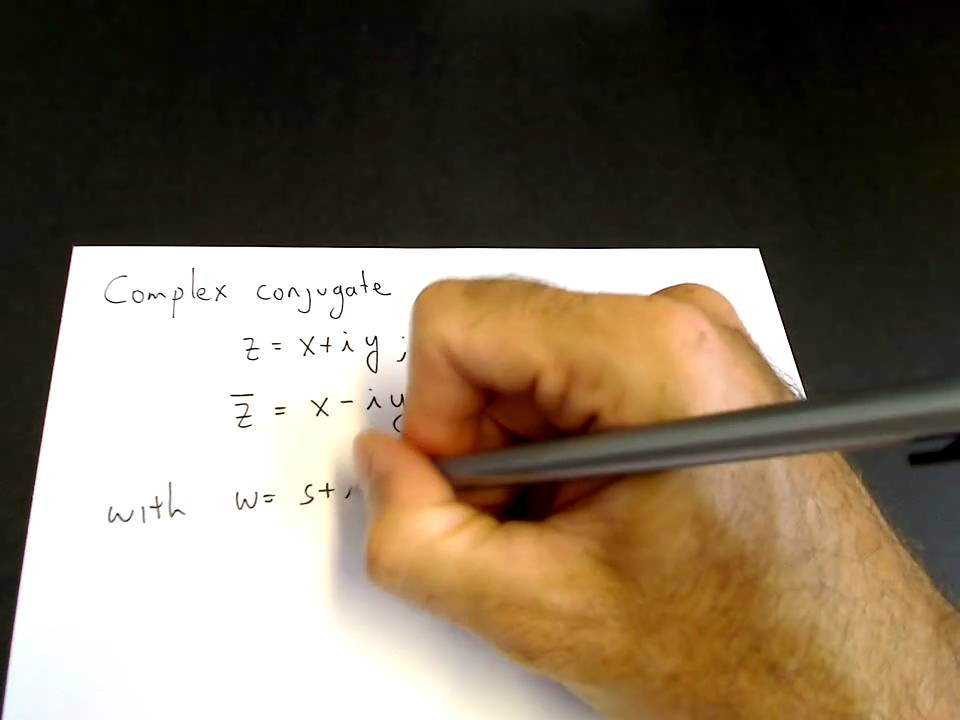 Complex conjugate
z = x + i y ;
z̅ = x - i y
with w = s +